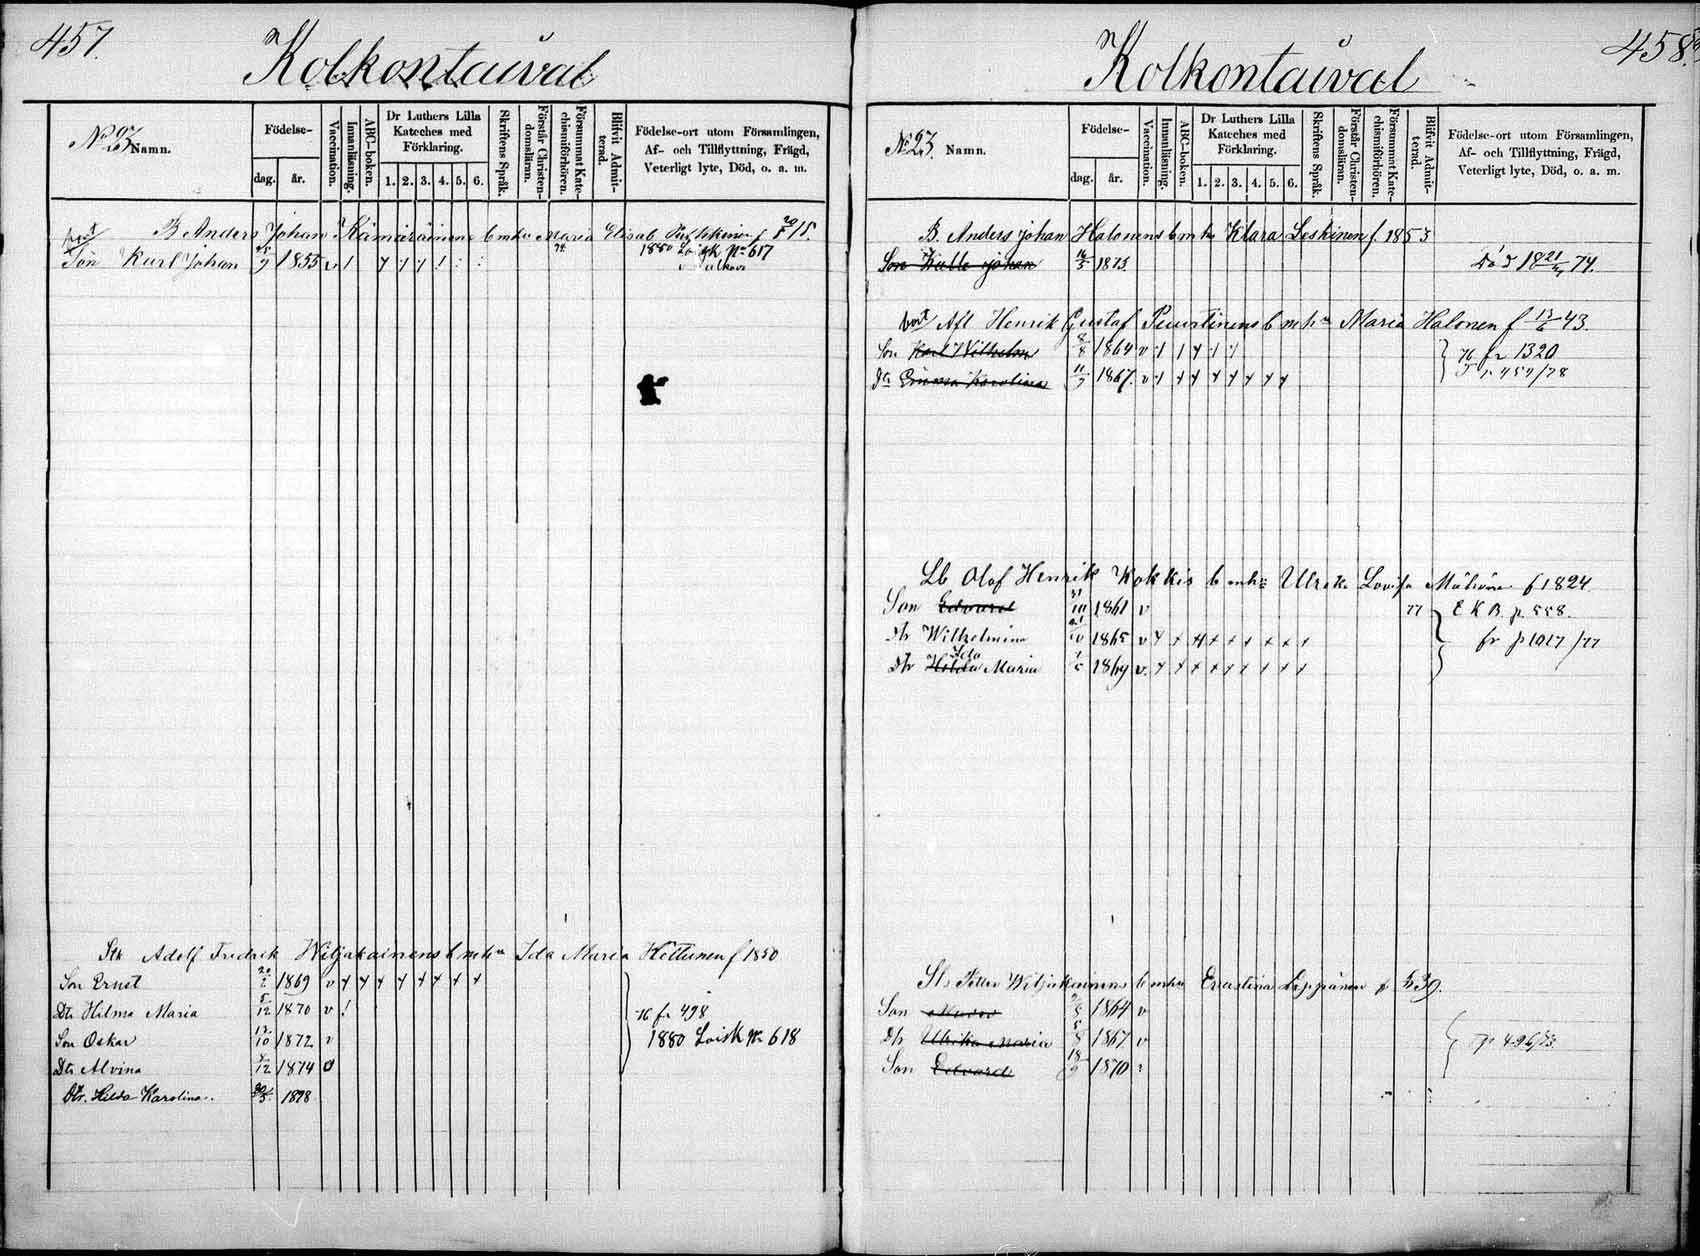 457.
Kolkontaival
No 23 Namn.
Födelse-
dag. år.
Vaccination.
Innanläsning.
ABC-boken.
Dr Luthers Lilla Kateches med Förklaring.
1. 2. 3. 4. 5. 6.
Skriftens Språk.
Förstår Christendomslänn.
Försummat Katechismiförhören.
Blifvit Admitterad.
Födelse-ort utom Församlingen,
Af- och Tillflyttning, Frägd,
Veterligt lyte, Död, o. a. m.
B Anders Johan Kämäräinens b m hu Maria Elisab. f 20/8 15.
bort
Son Karl Johan 9 1855 v 1880 Loisk No 617
Stk Adolf Fredrik Wiljakainens b m hu Ida Maria Hottunen f 1850
Son Ernst 20/2 1869 v
Dtr Hilma Maria 5/12 1870 v H fr 498
Son Oskar 13/10 1872 v 1880 Loisk No 618
Dtr Alvina 7/12 1874 v
Dtr. Hilda Karolina. 30/3 1878
458.
Kolkontaival
No 23. Namn.
Födelse-
dag. år.
Vaccination.
Innanläsning.
ABC-boken.
Dr Luthers Lilla Kateches med Förklaring.
1. 2. 3. 4. 5. 6.
Skriftens Språk.
Förstår Christendomslänn.
Försummat Katechismiförhören.
Blifvit Admitterad.
Födelse-ort utom Församlingen,
Af- och Tillflyttning, Frägd,
Veterligt lyte, Död, o. a. m.
B. Anders Johan Halonens b m hu Klara Leskinen f. 1853
Son Kalle Johan 16/3 1873. Död 18 21/4 74.
bort Afl Henrik Gustaf Puurtinens b m hu Maria Halonen f 13/6 43.
Son Karl Wilhelm 8/8 1864 v H fr 1320
Dtr Emma Karolina 11/7 1867. v p 457/78
Lb Olof Henrik Kokkis b m hu Ulrika Lovisa Mähönen f 1824
Son Edvard 31/10 1861 v 77 E K B. p. 558.
Dtr Wilhelmina 21/10 1865 v fr p 1017/77
Dtr Hilda Ida Maria 1/5 1869 v.
Stk Petter Wiljakainens b m hu Ernestina Leppänen f 39.
Son 1864 v
Dtr Ulrika Maria 5/8 1867 v p 496/73
Son Edvard 18/9 1870